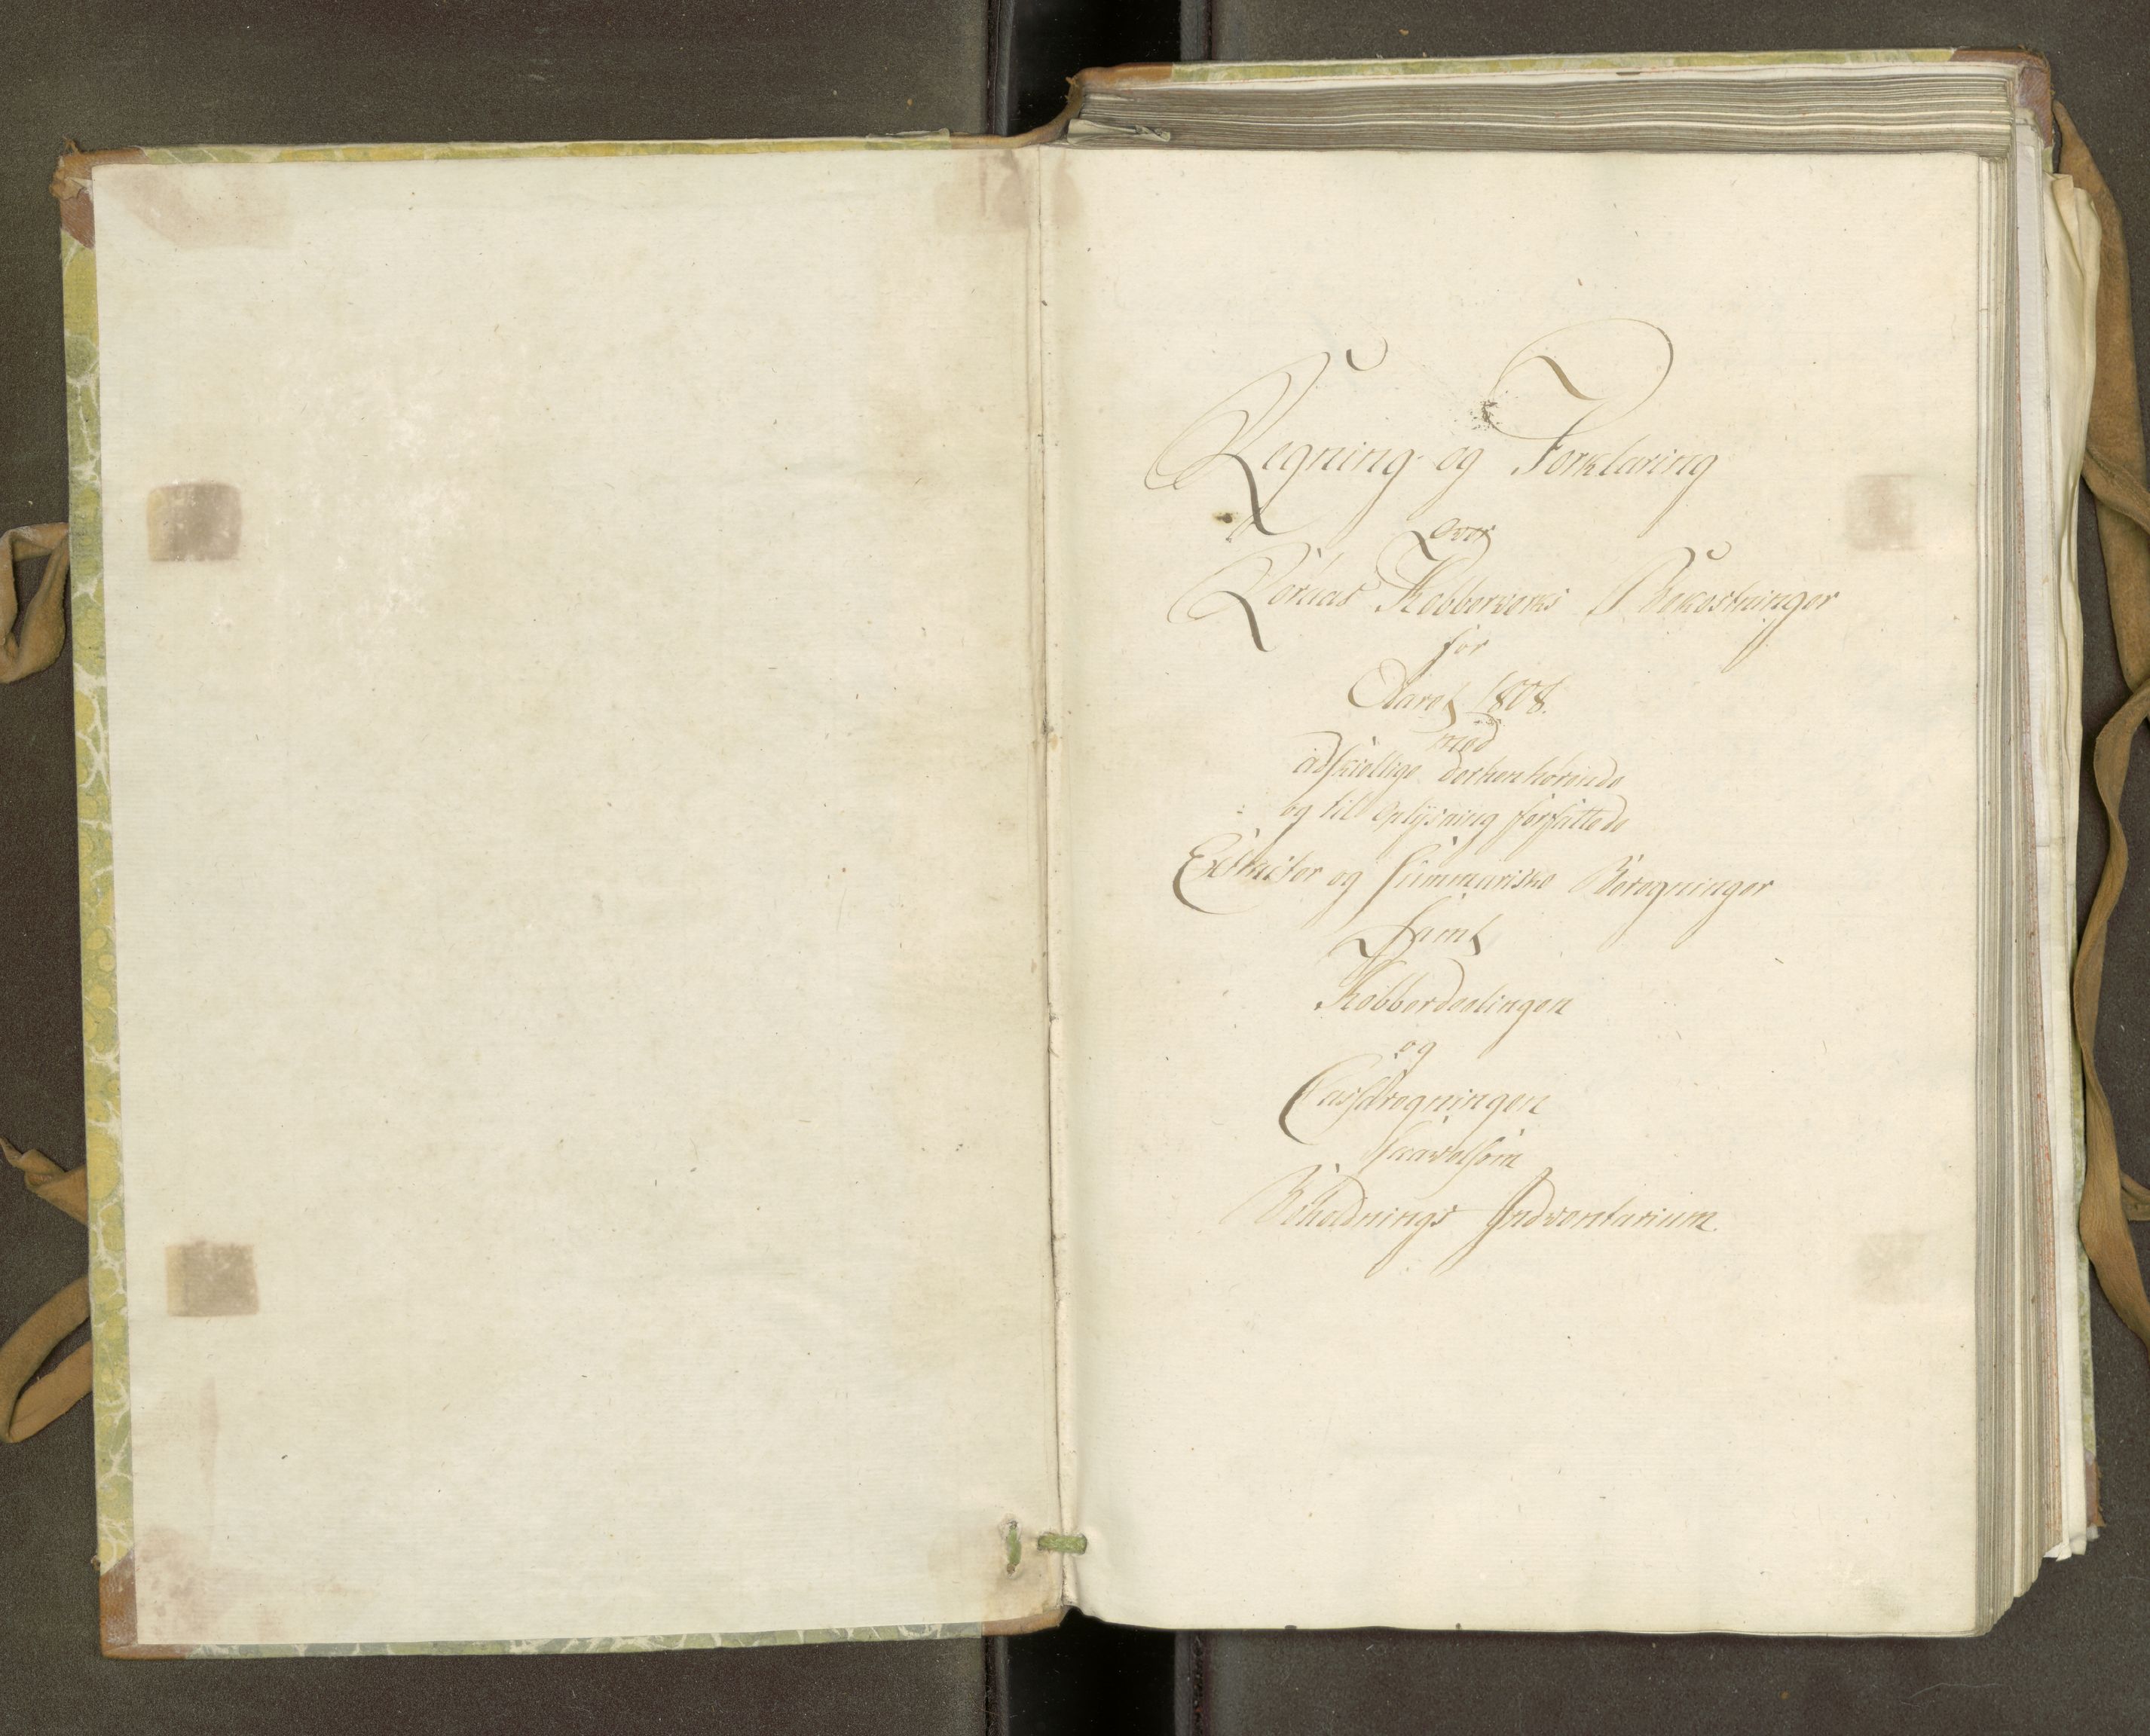 Regning og Forklaring
over
Röraas Kobberverks Bekostninger
for
Aaret 1808.
med
adskiellige derhenhørende
og til Oplÿsning forfattede
Extracter og summariske Beregninger
samt
Kobberdeelingen
og
Cassaregningen
saavelsom
Beholdnings Indventarium